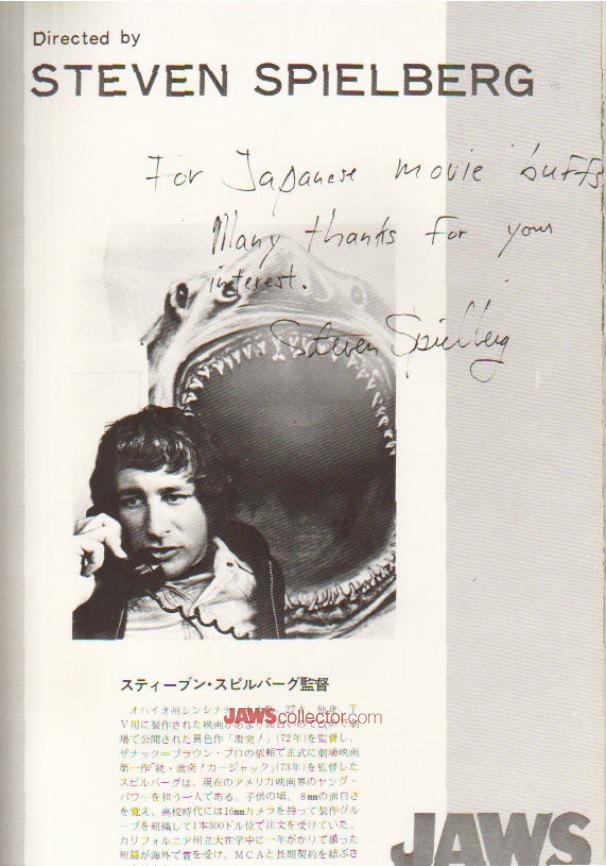 Directed by
STEVEN SPIELBERG
For Japanese movie buffs
Many thanks for your
interest.
Steven Spielberg
スティーブン・スピルバーグ監督
オハイオ州シンシナティ
JAWScollector.com
場で公開された異色作「激突!」(72年)を監督し、
ザナック=ブラウン・プロの依頼で正式に劇場映画
第一作「続・激突!カージャック」(73年)を監督した
スピルバーグは、現在のアメリカ映画界のヤング・
パワーを担う一人である。子供の頃、8mmの面白さ
を覚え、高校時代には16mmカメラを持って製作グル
ープを組織して1本300ドル位で注文を受けていた。
カリフォルニア州立大在学中に一年がかりで撮った
短篇が海外で賞を受け、MCAと長期契約を結ぶさ
JAWS